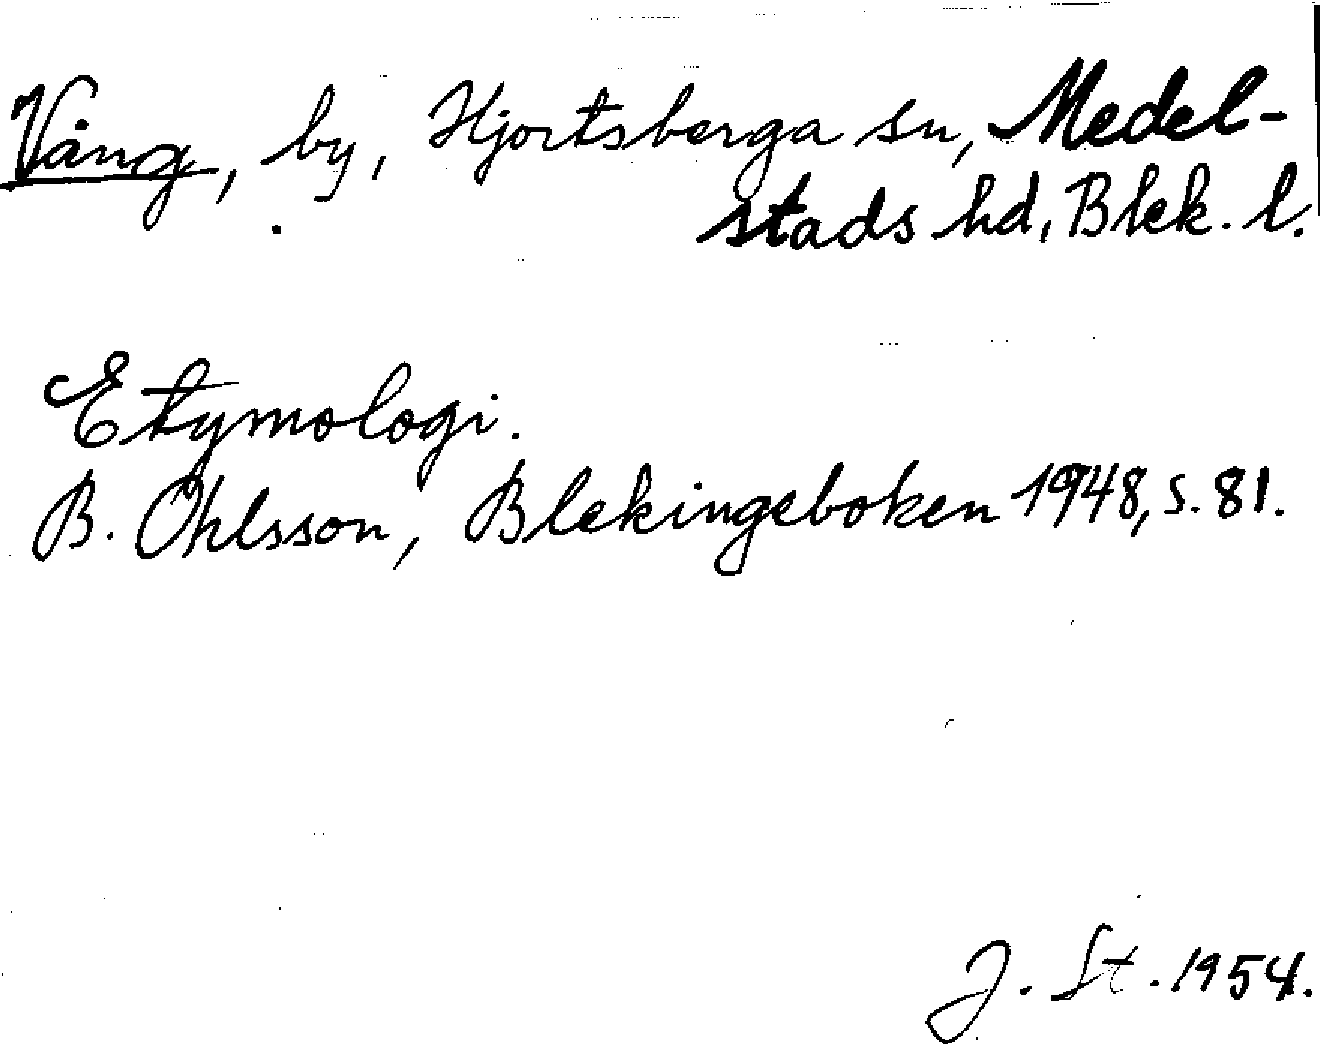 Vång, by, Hjortsberga sn, Medel-
stads hd, Blek. l.
Etymologi.
B. Ohlsson, Blekingeboken 1948, s. 81.
J. St. 1954.